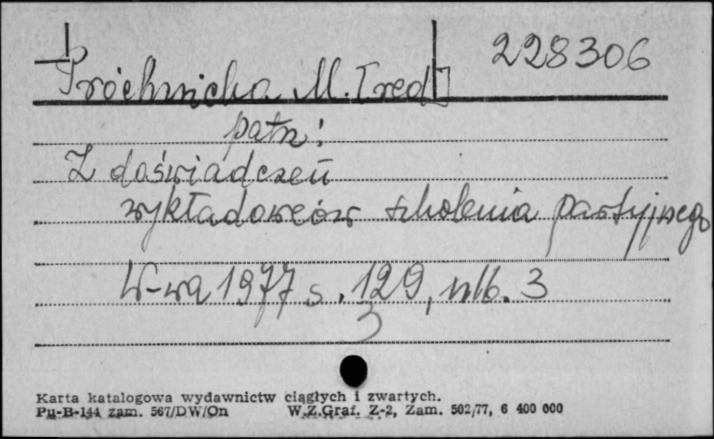 228306
Próchnicka M. [red]
patrz:
Z doświadczeń
wykładowców szkolenia partyjnego
W-wa 1977 s. 129, nlb. 3
3
Karta katalogowa wydawnictw ciągłych i zwartych.
Pu-B-144 zam. 567/DW/On W.Z.Graf. Z-2, Zam. 502/77, 6 400 000